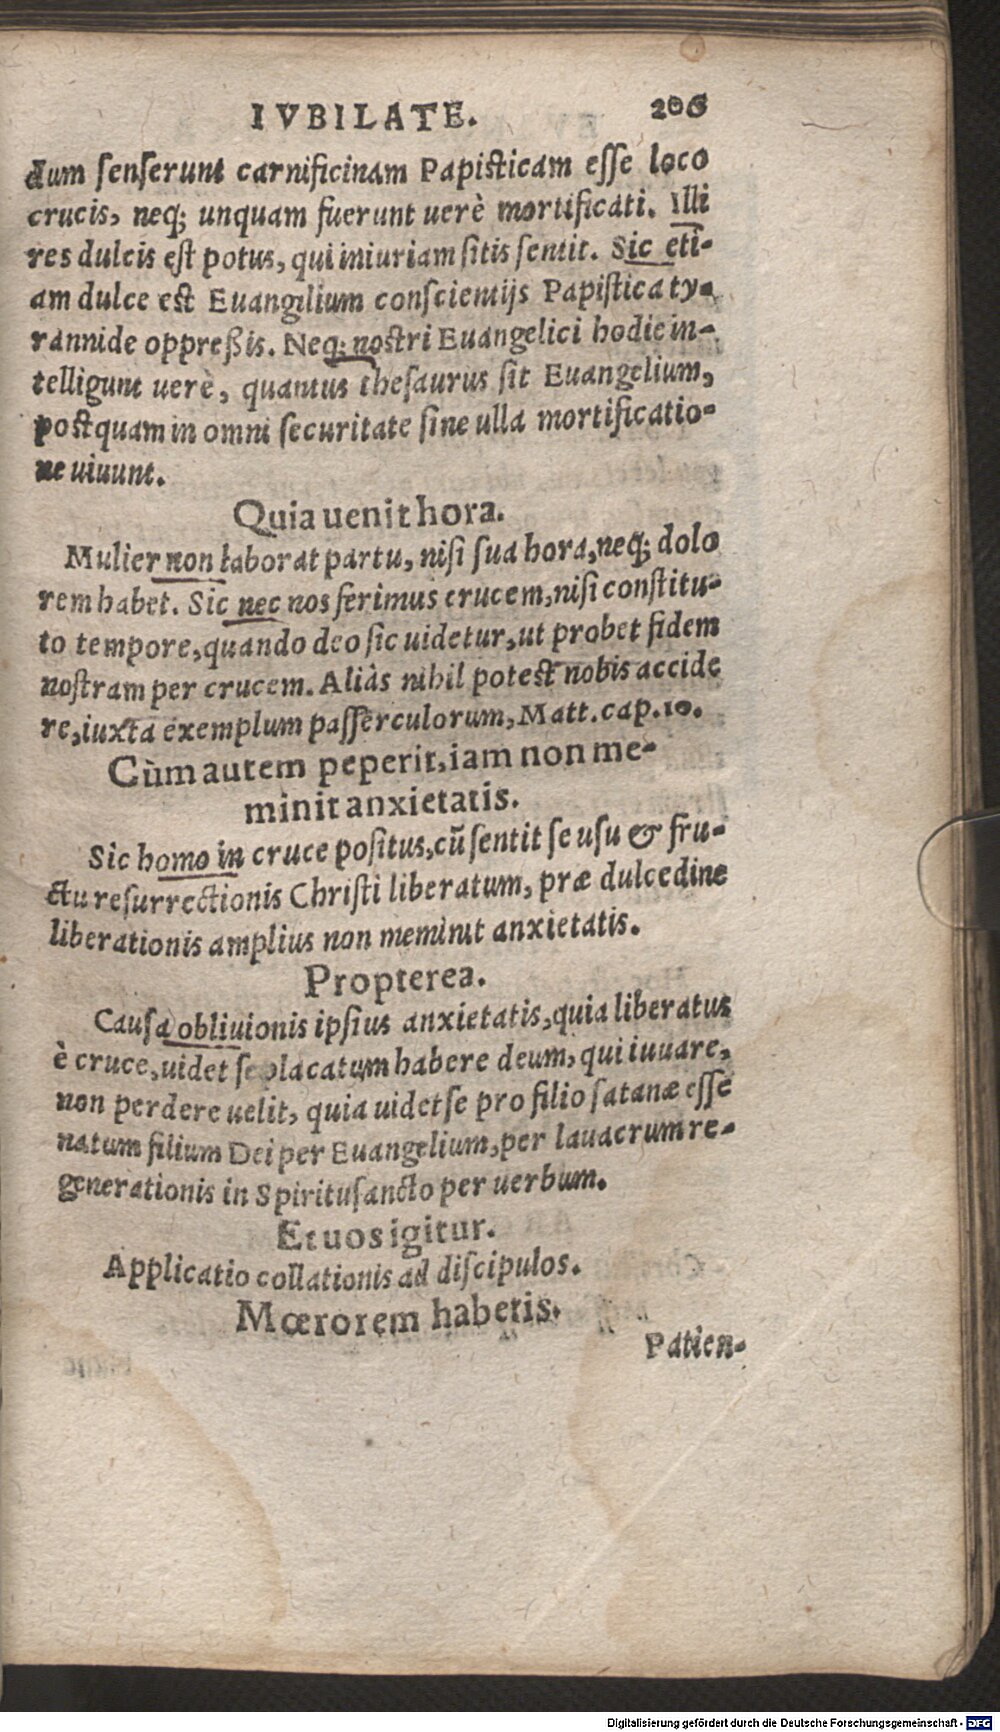 IVBILATE. 206
dum senserunt carnificinam Papisticam esse loco
crucis, neq; unquam fuerunt uerè mortificati. Illi
res dulcis est potus, qui iniuriam sitis sentit. Sic eti-
am dulce est Euangelium conscientijs Papistica ty-
rannide oppreßis. Neq; nostri Euangelici hodie in-
telligunt uerè, quantus thesaurus sit Euangelium,
postquam in omni securitate sine ulla mortificatio-
ne uiuunt.
Quia uenit hora.
Mulier non laborat partu, nisi sua hora, neq; dolo
rem habet. Sic nec nos ferimus crucem, nisi constitu-
to tempore, quando deo sic uidetur, ut probet fidem
nostram per crucem. Aliàs nihil potest nobis accide
re, iuxta exemplum passerculorum, Matt. cap. 10.
Cùm autem peperit, iam non me-
minit anxietatis.
Sic homo in cruce positus, cũ sentit se usu & fru-
ctu resurrectionis Christi liberatum, præ dulcedine
liberationis amplius non meminit anxietatis.
Propterea.
Causa obliuionis ipsius anxietatis, quia liberatus
è cruce, uidet se placatum habere deum, qui iuuare,
non perdere uelit, quia uidet se pro filio satanæ esse
natum filium Dei per Euangelium, per lauacrum re-
generationis in Spiritusancto per uerbum.
Et uos igitur.
Applicatio collationis ad discipulos.
Mœrorem habetis.
Patien-
Digitalisierung gefördert durch die Deutsche Forschungsgemeinschaft - DFG